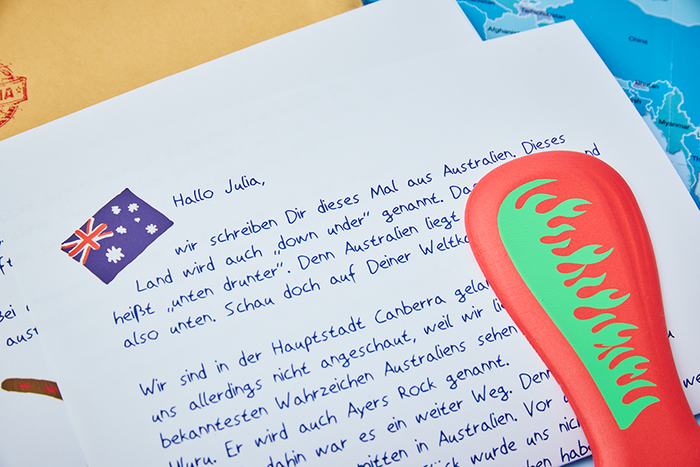 Hallo Julia,
wir schreiben Dir dieses Mal aus Australien. Dieses
Land wird auch „down under“ genannt. Das
heißt „unten drunter“. Denn Australien liegt
also unten. Schau doch auf Deiner Weltka
Wir sind in der Hauptstadt Canberra gelan
uns allerdings nicht angeschaut, weil wir lie
bekanntesten Wahrzeichen Australiens sehen
Uluru. Er wird auch Ayers Rock genannt.
dahin war es ein weiter Weg. Denn
mitten in Australien. Vor
wurde uns nich
China
Myanmar
Afghanistan